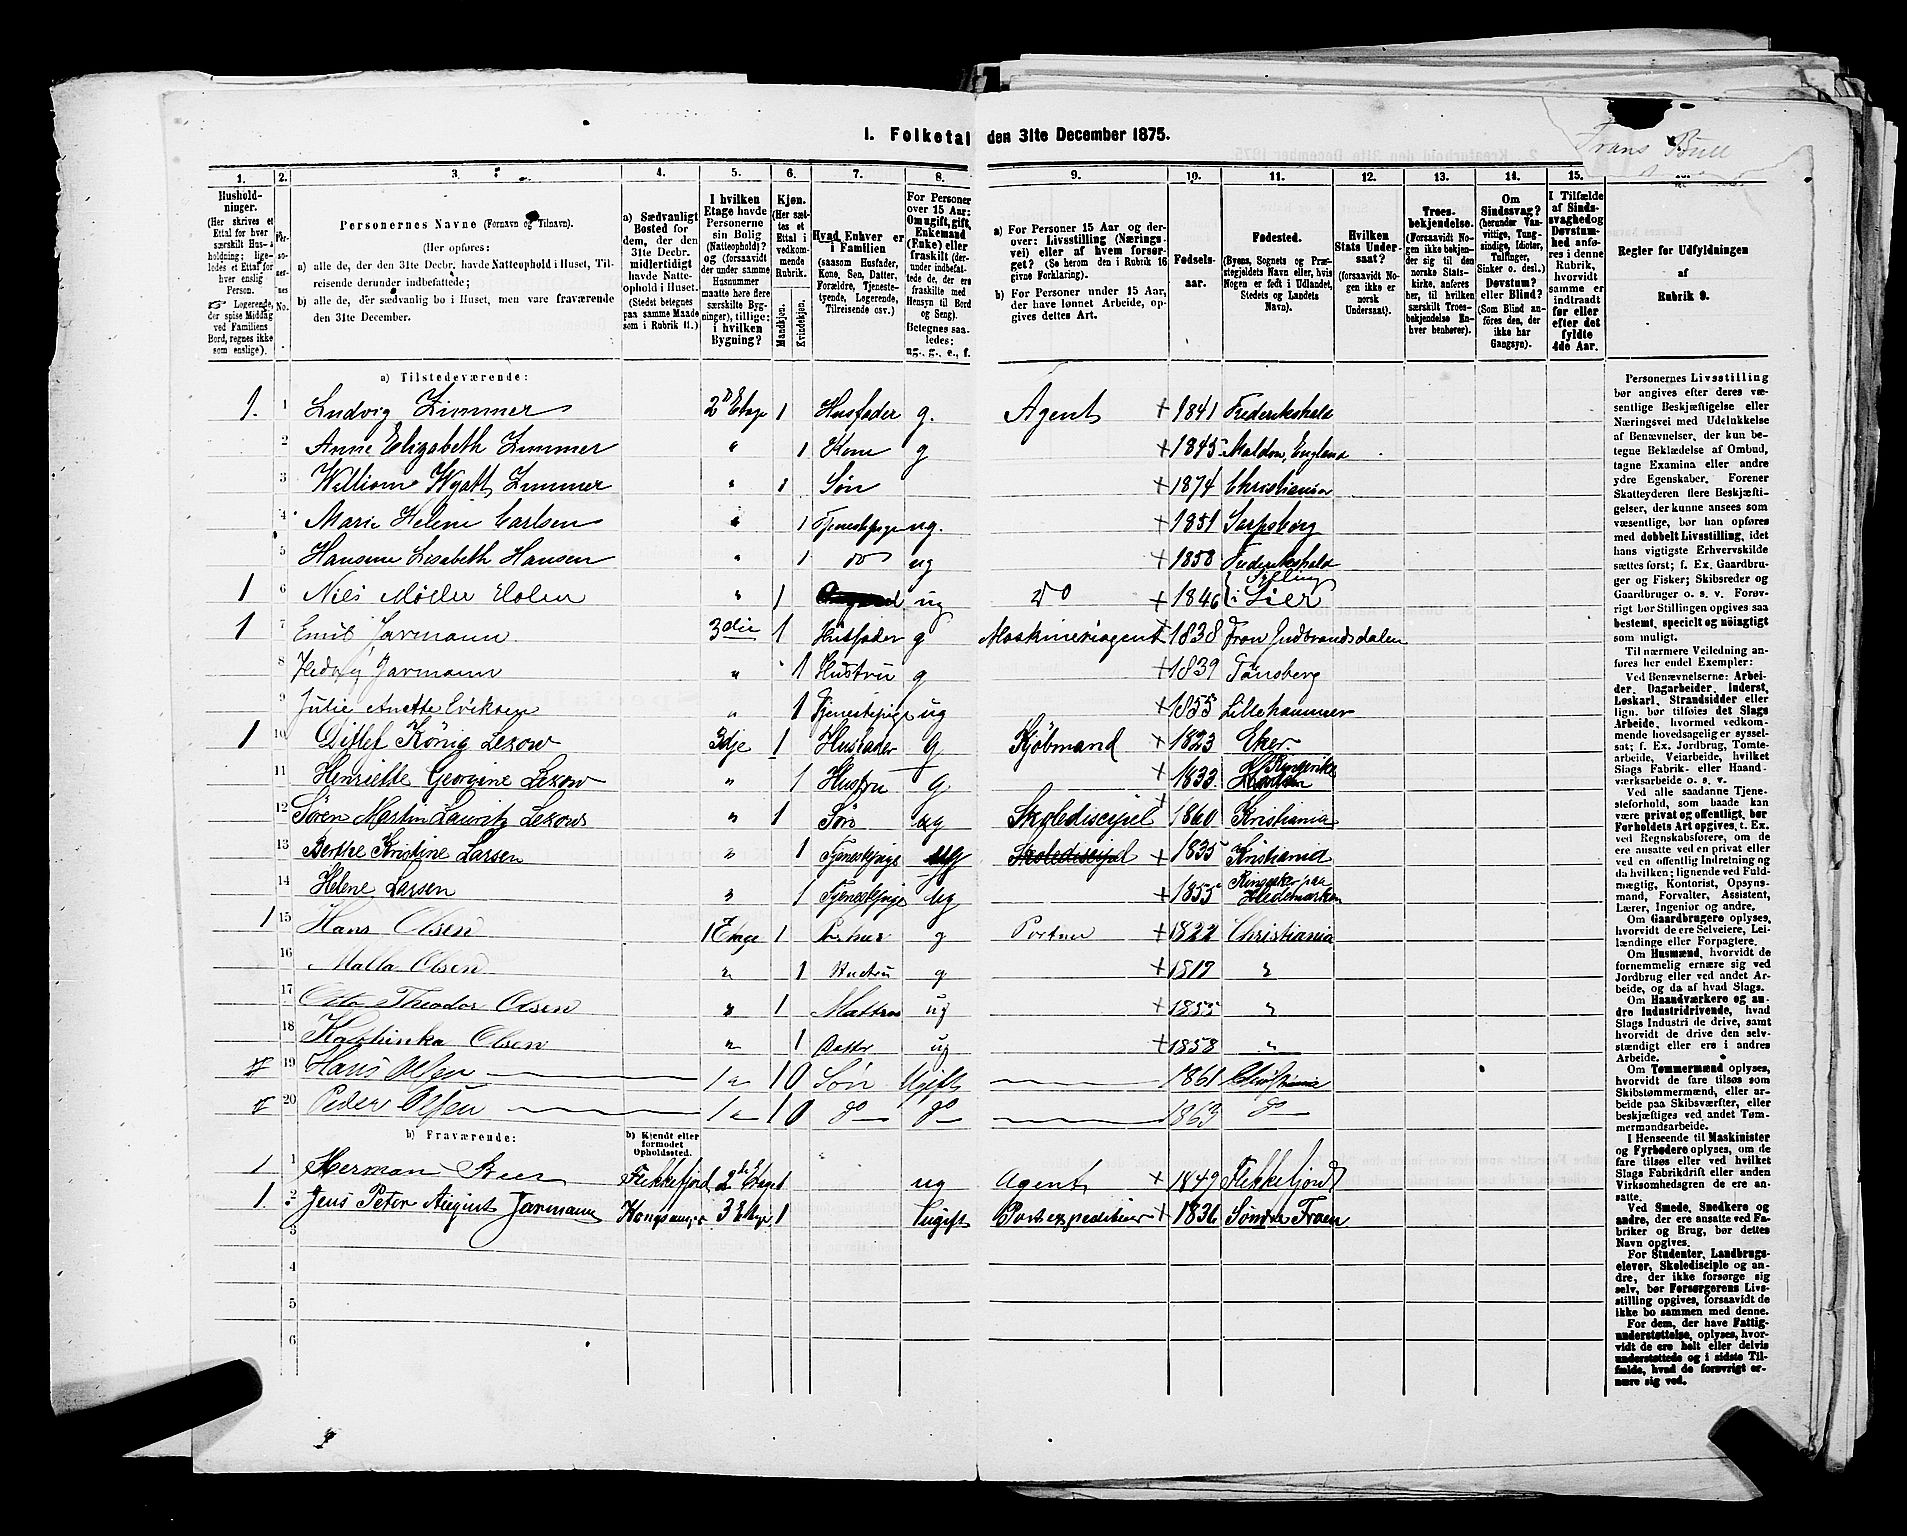 Frans Bull
I. Folketal den 31te December 1875.
1. 2. 3. 4. 5. 6. 7. 8. 9. 10. 11. 12. 13. 14. 15.
Hushold-
ninger.
(Her skrives et
Ettal for hver
særskilt Hus-
holdning; lige-
ledes et Ettal for
hver enslig
Person.
Logerende,
der spise Middag
ved Familiens
Bord, regnes ikke
som enslige).
Personernes Navne (Fornavn og Tilnavn).
(Her opføres:
a) alle de, der den 31te Decbr. havde Natteophold i Huset, Til-
reisende derunder indbefattede;
b) alle de, der sædvanlig bo i Huset, men vare fraværende
den 31te December.
a) Sædvanligt
Bosted for
dem, der den
31te Decbr.
midlertidigt
havde Natte-
ophold i Huset.
(Stedet betegnes
paa samme Maade
som i Rubrik 11.)
I hvilken
Etage havde
Personerne
sin Bolig
(Natteophold)?
og (forsaavidt
der under samme
Husnummer
maatte høre flere
særskilte Byg-
ninger), tillige:
i hvilken
Bygning?
Kjøn.
(Her sæt-
tes et
Ettal i
vedkom-
mende
Rubrik.
Mandkjøn.
Kvindekjøn.
Hvad Enhver er
i Familien
(saasom Husfader,
Kone, Søn, Datter,
Forældre, Tjeneste-
tyende, Logerende,
Tilreisende osv.)
For Personer
over 15 Aar:
Om ugift, gift,
Enkemand
(Enke) eller
fraskilt (der-
under indbefat-
tede de, der ere
fraskilte med
Hensyn til Bord
og Seng).
Betegnes saa-
ledes:
ug., g., e., f.
a) For Personer 15 Aar og der-
over: Livsstilling (Nærings-
vei) eller af hvem forsør-
get? (Se herom den i Rubrik 16
givne Forklaring).
b) For Personer under 15 Aar,
der have lønnet Arbeide, op-
gives dettes Art.
Fødsels-
aar.
Fødested.
(Byens, Sognets og Præ-
stegjeldets Navn eller, hvis
Nogen er født i Udlandet,
Stedets og Landets
Navn).
Hvilken
Stats Under-
saat?
(forsaavidt No-
gen ikke er
norsk
Undersaat).
Troes-
bekjendelse.
(Forsaavidt No-
gen ikke bekjen-
der sig til den
norske Stats-
kirke, anføres
her, til hvilken
særskilt Troes-
bekjendelse En-
hver henhører).
Om
Sindssvag?
(herunder Van-
vittige, Tung-
sindige, Idioter,
Tullinger,
Sinker o. desl.)
Døvstum?
eller Blind?
(Som Blind an-
føres den, der
ikke har
Gangsyn).
I Tilfælde
af Sinds-
svaghed og
Døvstum-
hed anfø-
res i denne
Rubrik,
hvorvidt
samme er
indtraadt
før eller
efter det
fyldte
4de Aar.
Regler for Udfyldningen
af
Rubrik 9.
a) Tilstedeværende:
1. 1 Ludvig Zimmer 2D Etage 1 Husfader g. Agent + 1841 Frederikshald
2 Anne Elizabeth Zimmer " 1 Kone g + 1845 Maldon, England
3 William Wyatt Zimmer " 1 Søn + 1874 Christiania
4 Marie Helene Carlsen " 1 Tjenestepige ug. + 1851 Sarpsborg
5 Hansine Lisabeth Hansen " 1 do ug + 1858 Frederikshald
1 6 Nils Møller Holen " 1 ug do + 1846 i Lier
1 7 Emil Jarmann 3die 1 Husfader g Maskineriagent + 1838 Fron Gudbrandsdalen
8 Hedvig Jarmann " 1 Hustru g + 1839 Tønsberg
9 Julie Anette Eriksen " 1 Tjenestepige ug + 1855 Lillehammer
1 10 Ditlef König Lexow 3dje 1 Husfader g Kjøbmand + 1823 Eker.
11 Henriette Georgine Lexow " 1 Hustru g + 1833 Ringerike
12 Søren Martin Lauritz Lexow " 1 Søn ug Skolediscipel + 1860 Kristiania
13 Berthe Kristine Larsen " 1 Tjenestepige ug Skolediscipel + 1835 Kristiania
14 Helene Larsen " 1 Tjenestepige ug + 1855 Ringsaker paa Hedemarken
1 15 Hans Olsen 1 Etage 1 g Portner + 1822 Christiania
16 Malla Olsen " 1 Hustru g + 1817 "
17 Otto Theodor Olsen " 1 Mattros ug + 1855 "
18 Kathinka Olsen " 1 Datter ug + 1858 "
19 Hans Olsen 1 " 1 0 Søn Ugift 1861 Christiania
20 Peder Olsen 1 " 1 0 do do 1863 do
b) Fraværende:
b) Kjendt eller
formodet
Opholdssted.
1 1 Herman Beer Flekkefjord 2de Etage 1 ug Agent + 1849 Flekkefjord
1. 2 Jens Peter August Jarmann Kongsvinger 3 Etage 1 Ugift Postexpeditieur + 1836 Søndre Fron
3
4
5
6
Personernes Livsstilling
bør angives efter deres væ-
sentlige Beskjæftigelse eller
Næringsvei med Udelukkelse
af Benævnelser, der kun be-
tegne Beklædelse af Ombud,
tagne Examina eller andre
ydre Egenskaber. Forener
Skatteyderen flere Beskjæfti-
gelser, der kunne ansees som
væsentlige, bør han opføres
med dobbelt Livsstilling, idet
hans vigtigste Erhvervskilde
sættes først; f. Ex. Gaardbru-
ger og Fisker; Skibsreder og
Gaardbruger o. s. v. Forøv-
rigt bør Stillingen opgives saa
bestemt, specielt og nøiagtigt
som muligt.
Til nærmere Veiledning an-
føres her endel Exempler:
Ved Benævnelserne: Arbei-
der, Dagarbeider, Inderst,
Løskarl, Strandsidder eller
lign. bør tilføies det Slags
Arbeide, hvormed vedkom-
mende hovedsagelig er syssel-
sat; f. Ex. Jordbrug, Tomte-
arbeide, Veiarbeide, hvilket
Slags Fabrik- eller Haand-
værksarbeide o. s. v.
Ved alle saadanne Tjene-
steforhold, som baade kan
være privat og offentligt, bør
Forholdets Art opgives, t. Ex.
ved Regnskabsførere, om de
ere ansatte ved en privat eller
ved en offentlig Indretning og
da hvilken; lignende ved Fuld-
mægtig, Kontorist, Opsyns-
mand, Forvalter, Assistent,
Lærer, Ingeniør og andre.
Om Gaardbrugere oplyses,
hvorvidt de ere Selveiere, Lei-
lændinge eller Forpagtere.
Om Husmænd, hvorvidt de
fornemmelig ernære sig ved
Jordbrug eller ved andet Ar-
beide, og da af hvad Slags.
Om Haandværkere og an-
dre Industridrivende, hvad
Slags Industri de drive, samt
hvorvidt de drive den selv-
stændigt eller ere i andres
Arbeide.
Om Tømmermænd oplyses,
hvorvidt de fare tilsøs som
Skibstømmermænd, eller ar-
beide paa Skibsværfter, eller
beskjæftiges ved andet Tøm-
mermandsarbeide.
I Henseende til Maskinister
og Fyrbødere oplyses, om de
fare tilsøs eller ved hvilket
Slags Fabrikdrift eller anden
Virksomhedsgren de ere an-
satte.
Ved Smede, Snedkere og
andre, der ere ansatte ved Fa-
briker og Brug, bør dettes
Navn opgives.
For Studenter, Landbrugs-
elever, Skoledisciple og an-
dre, der ikke forsørge sig
selv, bør Forsørgerens Livs-
stilling opgives, forsaavidt de
ikke bo sammen med denne.
For dem, der have Fattig-
understøttelse, oplyses, hvor-
vidt de ere helt eller delvis
understøttede og i sidste Til-
fælde, hvad de forøvrigt er-
nære sig ved.